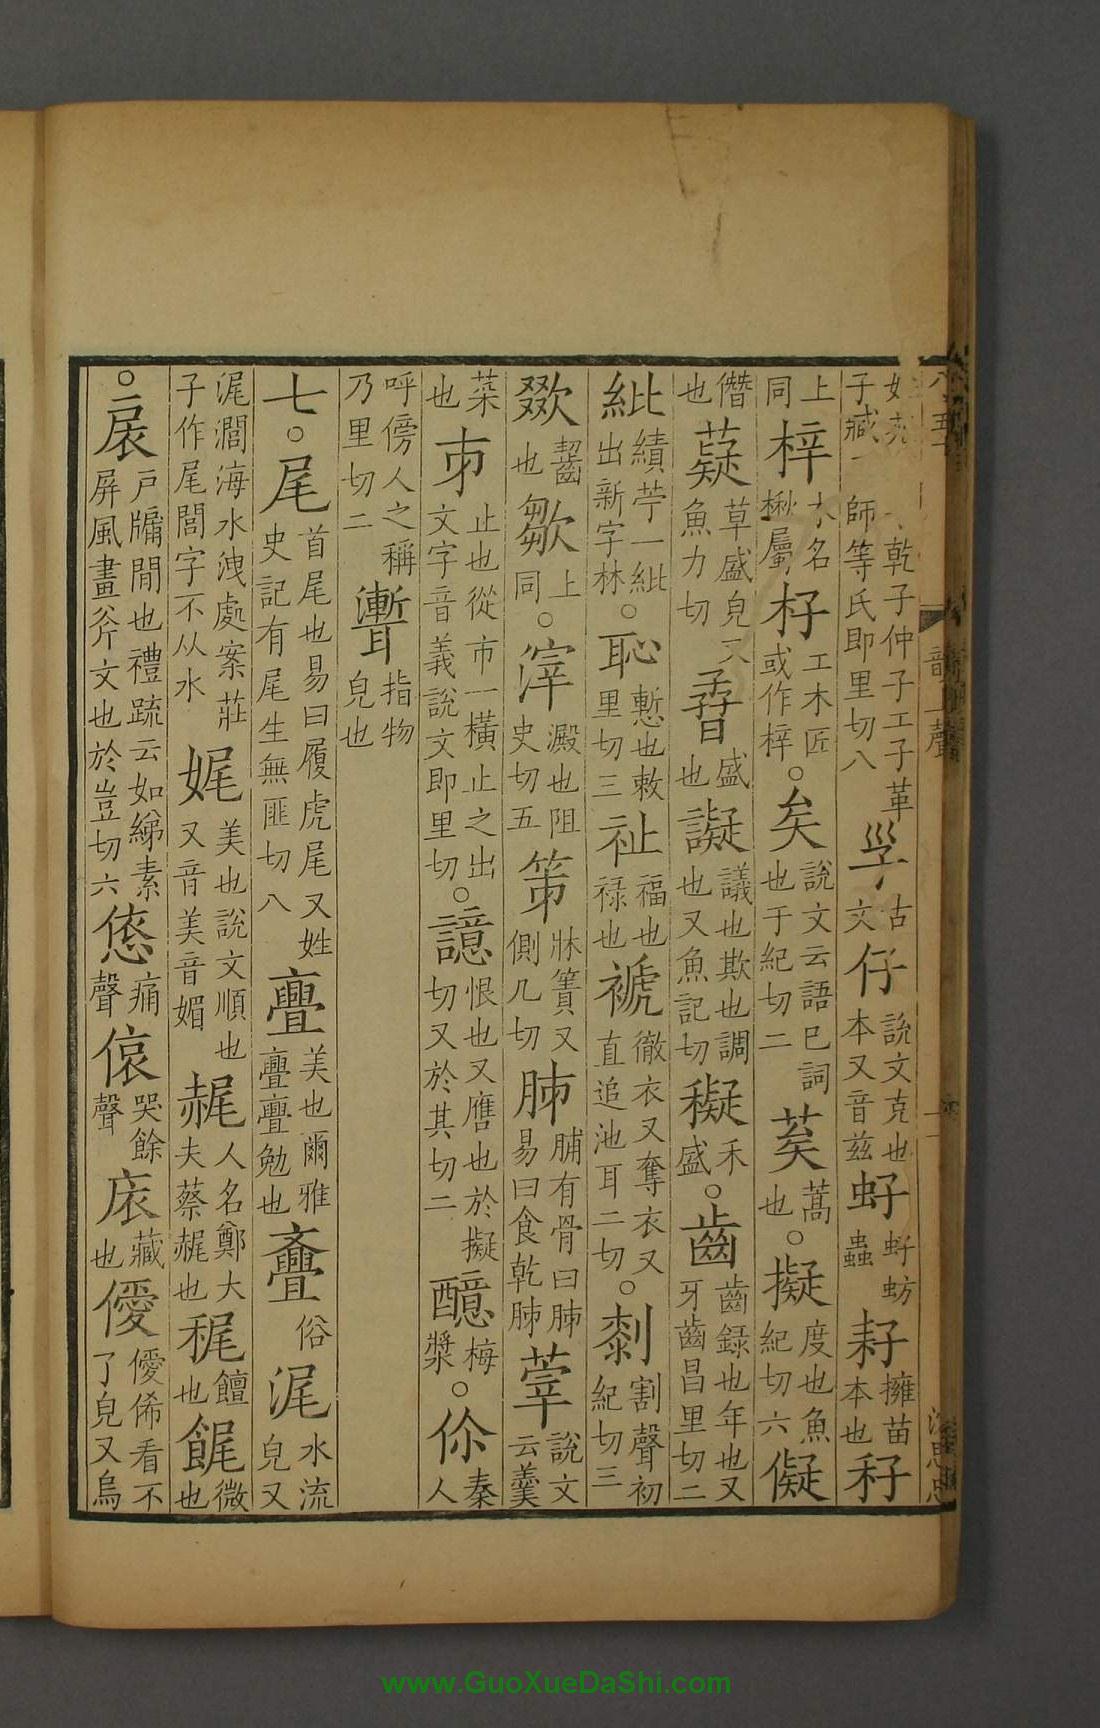 子臧 乾子仲子工子革師等氏即里切八㜽古文仔說文克也本又音兹虸虸蚄蟲耔擁苗本也秄
上同梓木名楸屬杍工木匠或作梓○矣說文云語巳詞也于紀切二䔇蒿也○擬度也魚紀切六儗
僭也薿草盛皃又魚力切㬜盛也譺議也欺也調也又魚記切䅲禾盛○齒齒録也年也又牙齒昌里切二
紪績苧一紪出新字林○恥慙也敕里切三祉福也禄也褫徹衣又奪衣又直追池耳二切○剺割聲初紀切三
歠齧也㰼上同○滓澱也阻史切五笫牀簀又側几切胏脯有骨曰胏易曰食乾胏莘說文云羹
菜也巿止也從巿一橫止之出文字音義說文即里切○譩恨也又譍也於擬切又於其切二醷梅漿○伱秦人
呼傍人之稱乃里切二㵶指物皃也
七○尾首尾也易曰履虎尾又姓史記有尾生無匪切八亹美也爾雅亹亹勉也斖俗浘水流皃又
浘澗海水洩處案莊子作尾閭字不从水娓美也說文順也又音美音媚䞔人名鄭大夫蔡䞔也䅏饘也䬿微也
○扆戶牖間也禮疏云如綈素屏風畫斧文也於豈切六㥋痛聲偯哭餘聲庡藏也僾僾俙看不了皃又烏
www.GuoXueDaShi.com